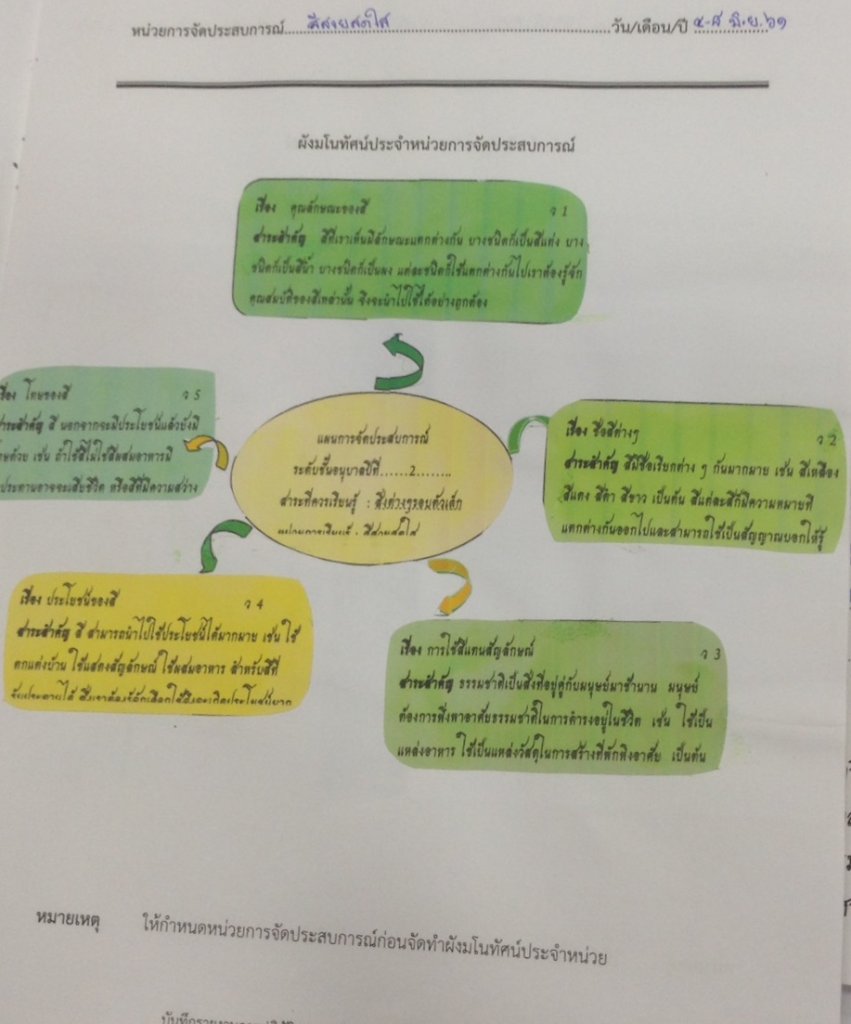 หน่วยการจัดประสบการณ์ สีสวยสดใส วัน/เดือน/ปี ๔-๘ มิ.ย. ๖๑
ผังมโนทัศน์ประจำหน่วยการจัดประสบการณ์
เรื่อง คุณลักษณะของสี จ 1
สาระสำคัญ สีที่เราเห็นมีลักษณะแตกต่างกัน บางชนิดก็เป็นสีแท่ง บาง
ชนิดก็เป็นสีน้ำ บางชนิดก็เป็นผง แต่ละชนิดก็ใช้แตกต่างกันไปเราต้องรู้จัก
คุณสมบัติของสีเหล่านั้น จึงจะนำไปใช้ได้อย่างถูกต้อง
เรื่อง ชื่อสีต่างๆ จ 2
สาระสำคัญ สีมีชื่อเรียกต่าง ๆ กันมากมาย เช่น สีเหลือง
สีแดง สีดำ สีขาว เป็นต้น สีแต่ละสีก็มีความหมายที่
แตกต่างกันออกไปและสามารถใช้เป็นสัญญาณบอกให้รู้
เรื่อง การใช้สีแทนสัญลักษณ์ จ 3
สาระสำคัญ ธรรมชาติเป็นสิ่งที่อยู่คู่กับมนุษย์มาช้านาน มนุษย์
ต้องการพึ่งพาอาศัยธรรมชาติในการดำรงอยู่ในชีวิต เช่น ใช้เป็น
แหล่งอาหาร ใช้เป็นแหล่งวัสดุในการสร้างที่พักพิงอาศัย เป็นต้น
เรื่อง ประโยชน์ของสี จ 4
สาระสำคัญ สี สามารถนำไปใช้ประโยชน์ได้มากมาย เช่น ใช้
ตกแต่งบ้าน ใช้แสดงสัญลักษณ์ ใช้ผสมอาหาร สำหรับสีที่
รับประทานได้
เรื่อง โทษของสี จ 5
สาระสำคัญ สี นอกจากจะมีประโยชน์แล้วยังมี
โทษด้วย เช่น ถ้าใช้สีไม่ใช้สีผสมอาหารมี
ประทานอาจจะเสียชีวิต หรือสีที่มีความสว่าง
แผนการจัดประสบการณ์
ระดับชั้นอนุบาลปีที่......2........
สาระที่ควรเรียนรู้ : สิ่งต่างๆรอบตัวเด็ก
หน่วยการเรียนรู้ : สีสวยสดใส
หมายเหตุ ให้กำหนดหน่วยการจัดประสบการณ์ก่อนจัดทำผังมโนทัศน์ประจำหน่วย